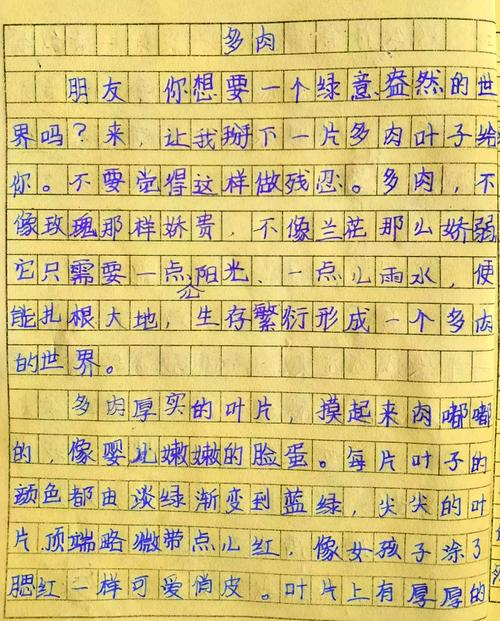 多肉
朋友，你想要一个绿意盎然的世
界吗？来，让我掰下一片多肉叶子给
你。不要觉得这样做残忍。多肉，不
像玫瑰那样娇贵，不像兰花那么娇弱
它只需要一点阳光、一点儿雨水，便
能扎根大地，生存繁衍形成一个多肉
的世界。
多肉厚实的叶片，摸起来肉嘟嘟
的，像婴儿嫩嫩的脸蛋。每片叶子的
颜色都由淡绿渐变到蓝绿，尖尖的叶
片顶端略微带点儿红，像女孩子涂了
腮红一样可爱俏皮。叶片上有厚厚的